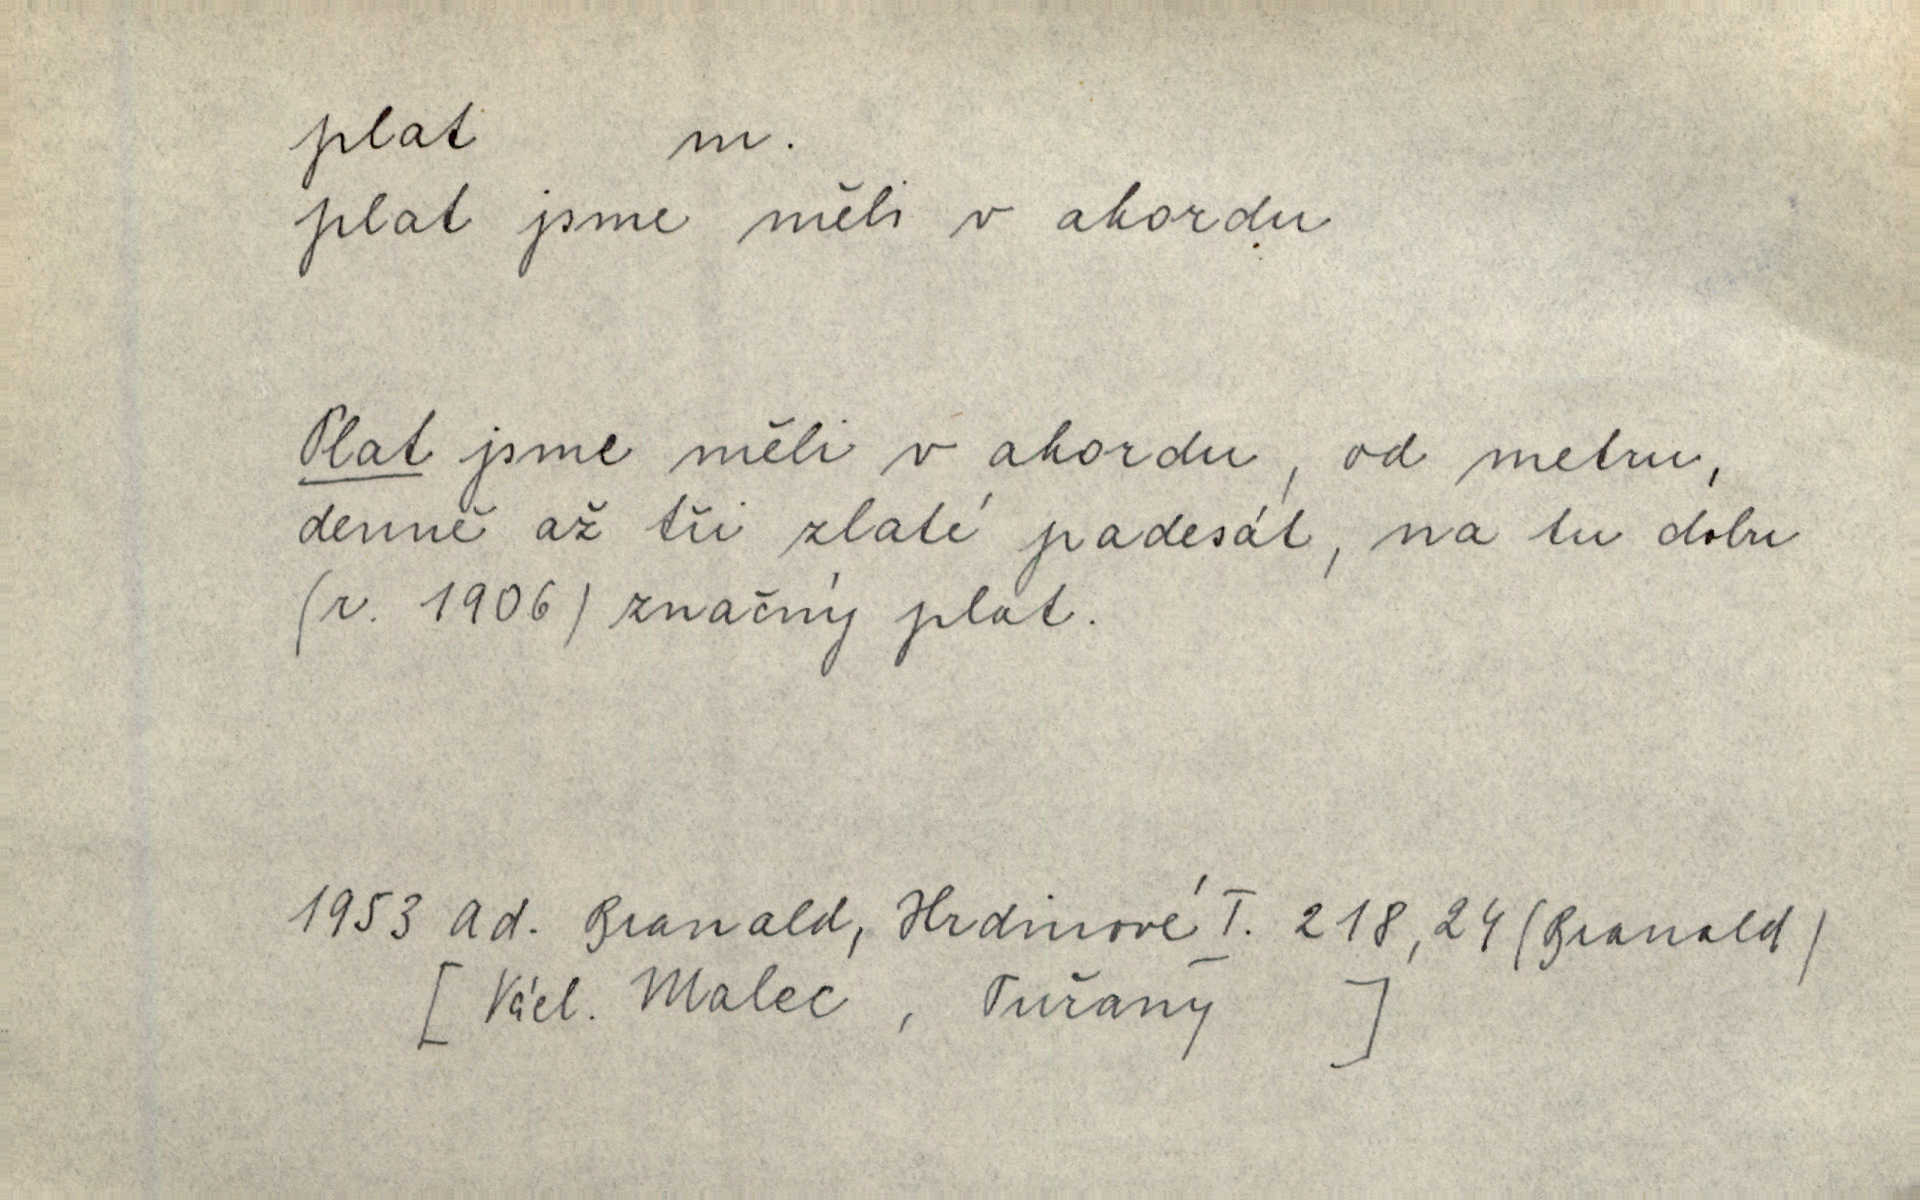 plat m.
plat jsme měli v akordu
Plat jsme měli v akordu, od metru,
denně až tři zlaté padesát, na tu dobu
(r. 1906) značný plat.
1953 Ad. Branald, Hrdinové I. 218,24 (Branald)
[Václ. Malec, Tuřany]